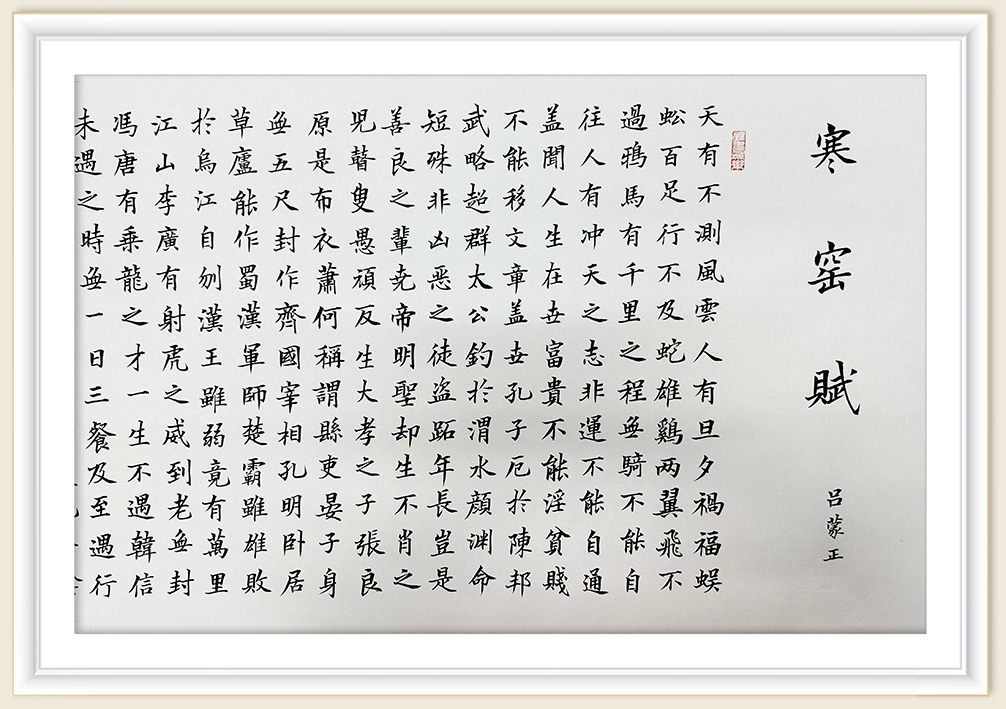 寒窑賦
呂蒙正
天有不測風雲人有旦夕禍福蜈
蚣百足行不及蛇雄鷄两翼飛不
過鴉馬有千里之程無騎不能自
往人有冲天之志非運不能自通
盖聞人生在世富貴不能淫貧賤
不能移文章盖世孔子厄於陳邦
武略超群太公釣於渭水顔渊命
短殊非凶恶之徒盗跖年長豈是
善良之輩尭帝明聖却生不肖之
児瞽叟愚頑反生大孝之子張良
原是布衣蕭何稱謂縣吏晏子身
無五尺封作齊國宰相孔明卧居
草廬能作蜀漢軍師楚霸雖雄敗
於烏江自刎漢王雖弱竟有萬里
江山李廣有射虎之威到老無封
馮唐有乘龍之才一生不遇韓信
未遇之時無一日三餐及至遇行